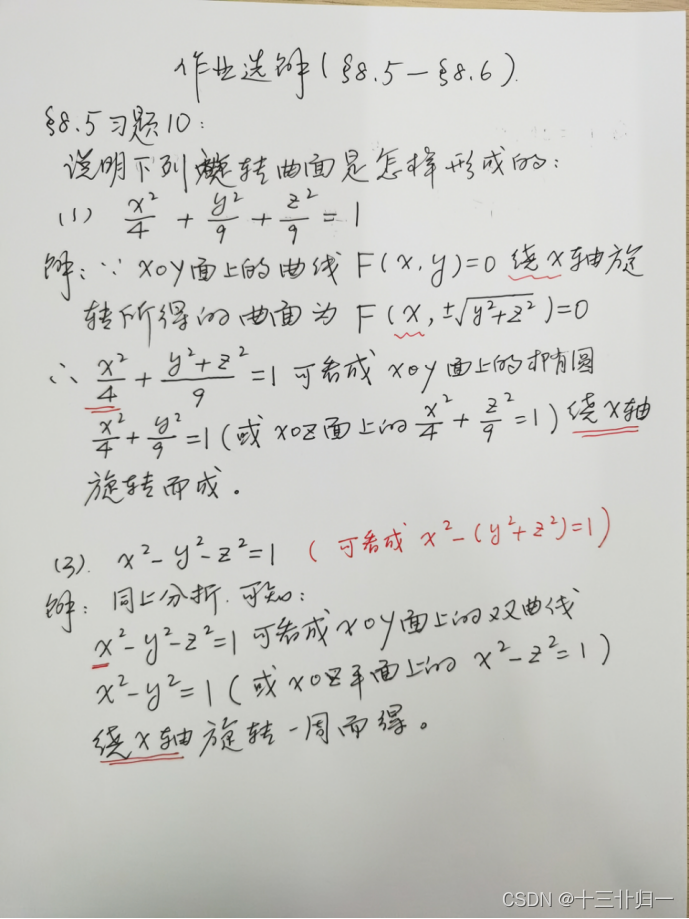 作业选解(§8.5-§8.6).
§8.5习题10:
说明下列旋转曲面是怎样形成的:
(1) x²/4 + y²/9 + z²/9 = 1
解: ∵ xoy面上的曲线 F(x,y)=0 绕x轴旋
转所得的曲面为 F(x,±√(y²+z²))=0
∴ x²/4 + (y²+z²)/9 = 1 可看成 xoy面上的椭圆
x²/4 + y²/9 = 1 (或 xoz面上的 x²/4 + z²/9 = 1) 绕x轴
旋转而成.
(3). x²-y²-z²=1 (可看成 x²-(y²+z²)=1)
解: 同上分折.可知:
x²-y²-z²=1 可看成xoy面上的双曲线
x²-y²=1 (或xoz平面上的 x²-z²=1)
绕x轴旋转一周而得。
CSDN @十三卝归一